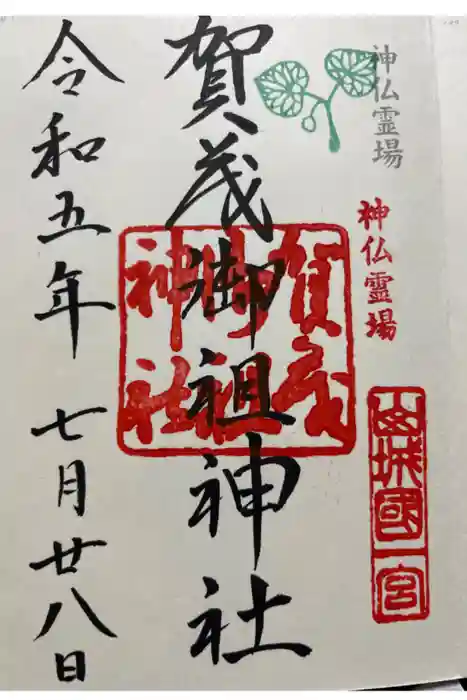 神仏霊場
神仏霊場
山城國一宮
賀茂御祖神社
賀茂
御祖
神社
令和五年 七月廿八日